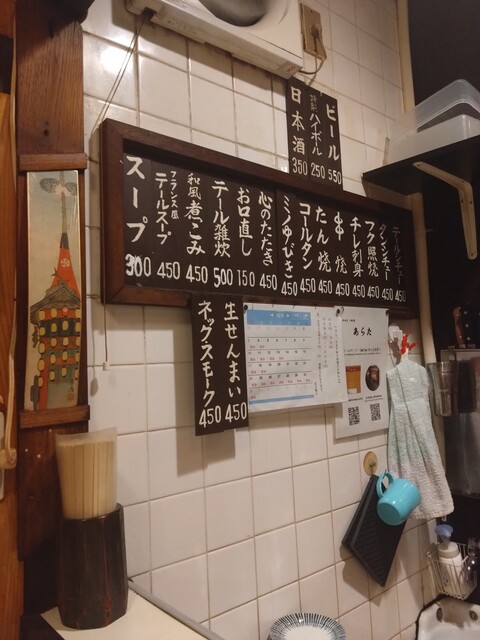 ビール 550
特製ハイボール 250
日本酒 350
テールシチュー 450
タンシチュー 450
フク照焼 450
チレ刺身 450
串焼 450
たん焼 450
コールタン 450
ミノゆびき 450
心のたたき 450
お口直し 150
テール雑炊 500
和風煮こみ 450
フランス風
テールスープ 450
スープ 300
生せんまい 450
ネックスモーク 450
あらた